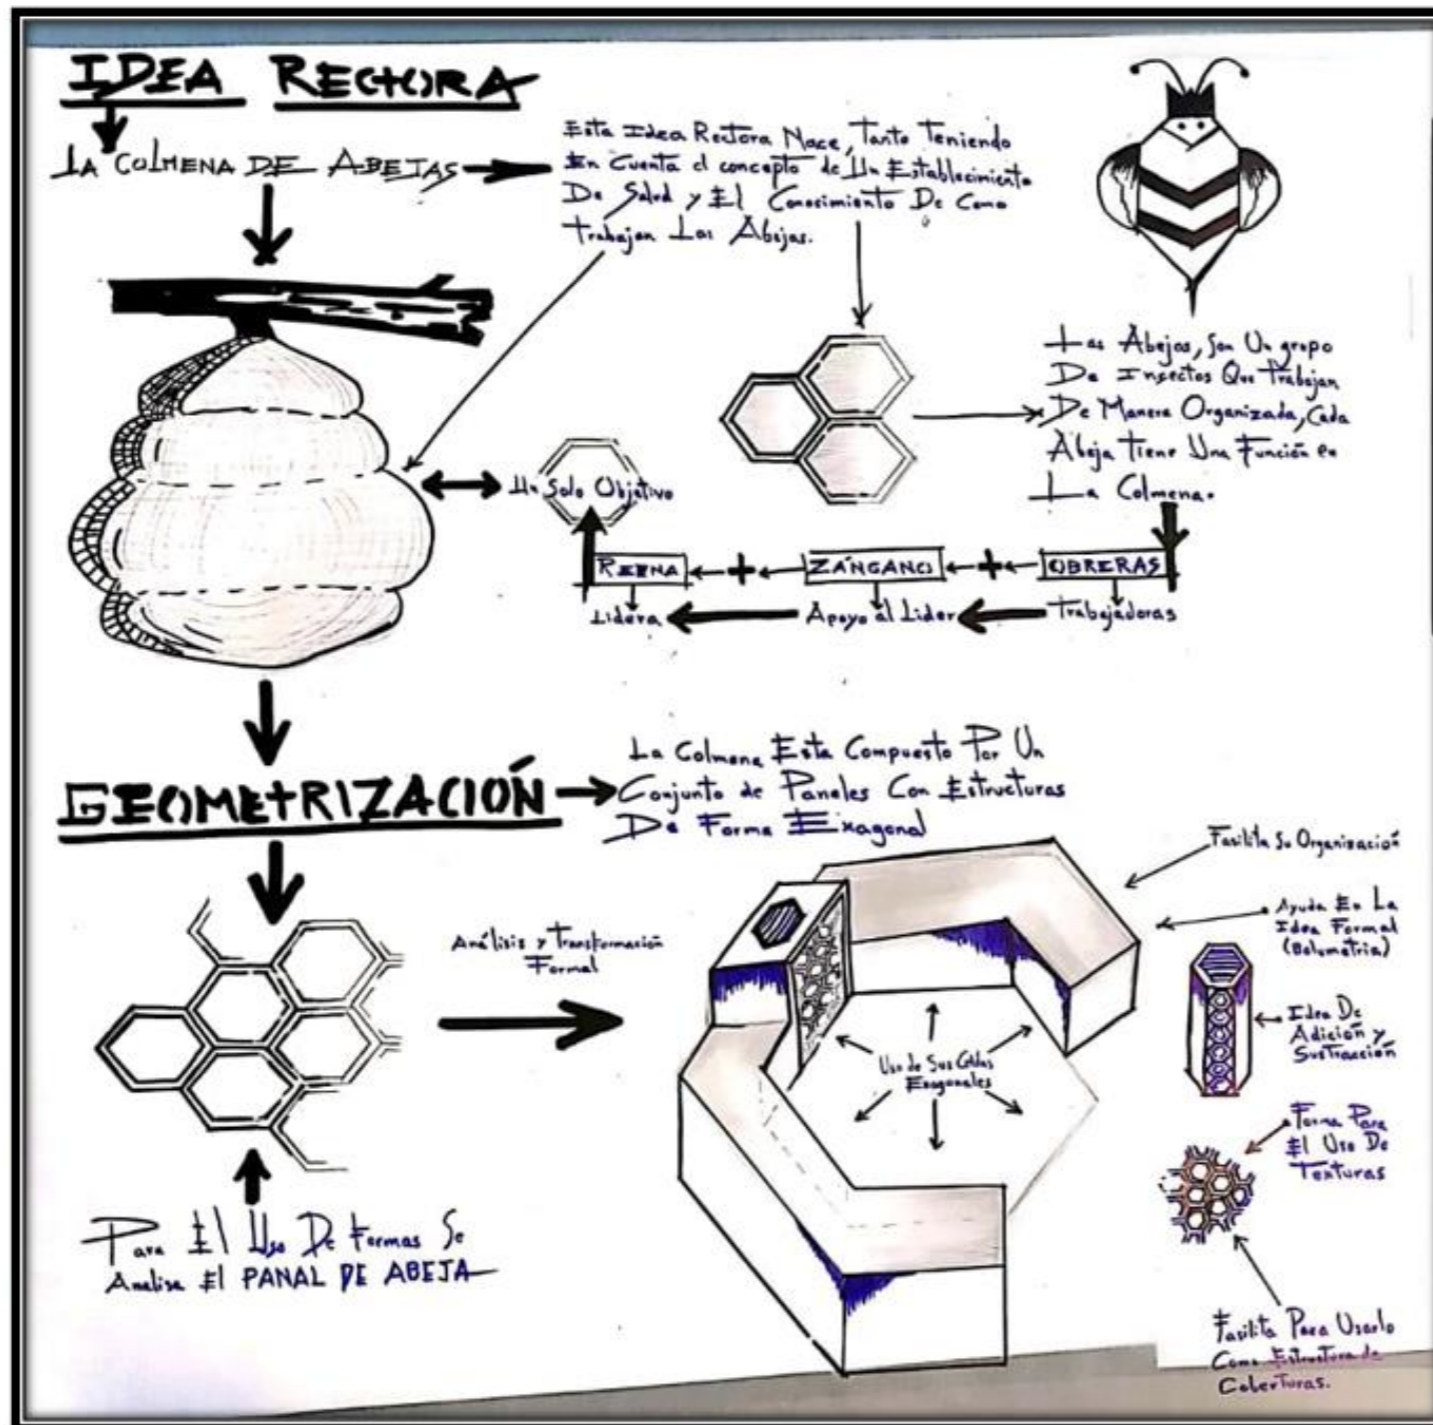 IDEA RECTORA
LA COLMENA DE ABEJAS
Esta Idea Rectora Nace, Tanto Teniendo
En Cuenta el concepto de Un Establecimiento
De Salud y El Conocimiento De Como
Trabajan Las Abejas.
Las Abejas, Son Un grupo
De Insectos Que Trabajan
De Manera Organizada, Cada
Abeja Tiene Una Función en
La Colmena.
Un Solo Objetivo
REINA + ZÁNGANO + OBRERAS
Lidera Apoyo al Lider Trabajadoras
GEOMETRIZACIÓN
La Colmena Esta Compuesto Por Un
Conjunto de Paneles Con Estructuras
De Forma Exagonal
Análisis y Transformación
Formal
Para El Uso De Formas Se
Analisa El PANAL DE ABEJA
Uso de Sus Celdas
Exagonales
Fasilita Su Organización
Ayuda En La
Idea Formal
(Bolumetria)
Idea De
Adición y
Sustracción
Forma Para
El Uso De
Texturas
Fasilita Para Usarlo
Como Estructura de
Coberturas.